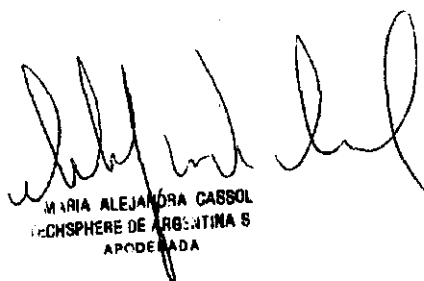 MARIA ALEJANDRA CASSOL
TECHSPHERE DE ARGENTINA S
APODERADA